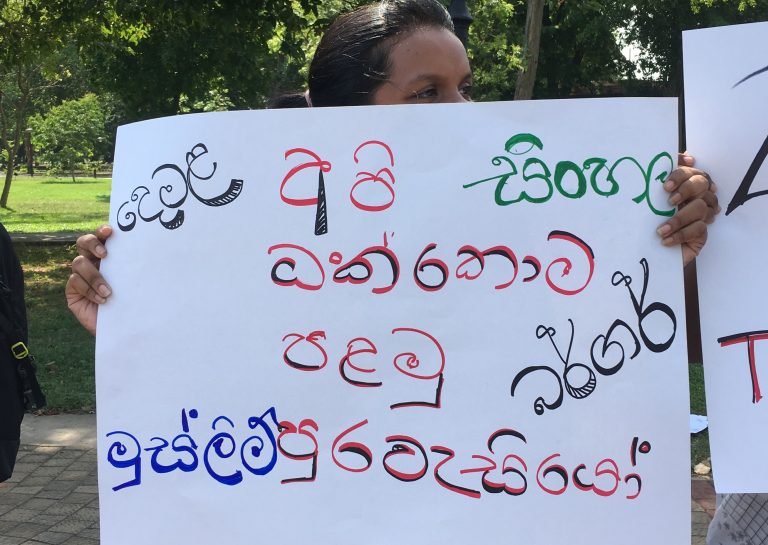 දෙමළ අපි සිංහල
ඔක්කොම
පළමු බර්ගර්
මුස්ලිම් පුරවැසියෝ